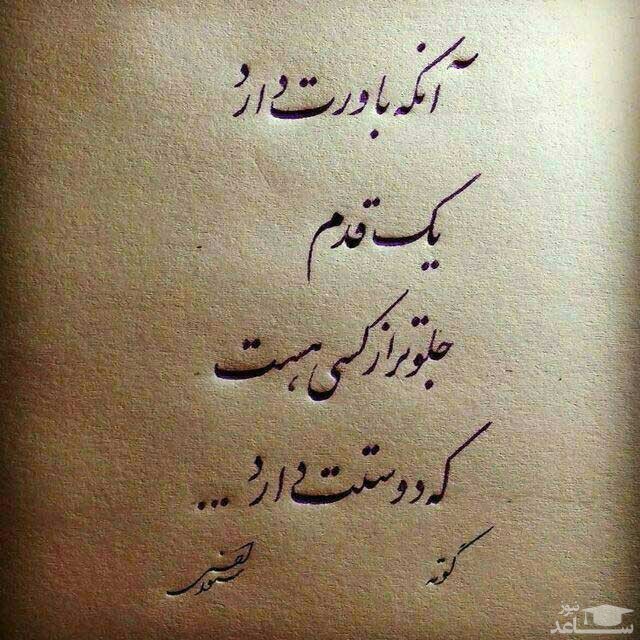 آنکه باورت دارد
یک قدم
جلوتر از کسی هست
که دوستت دارد ...
گوته
ساعد نیوز